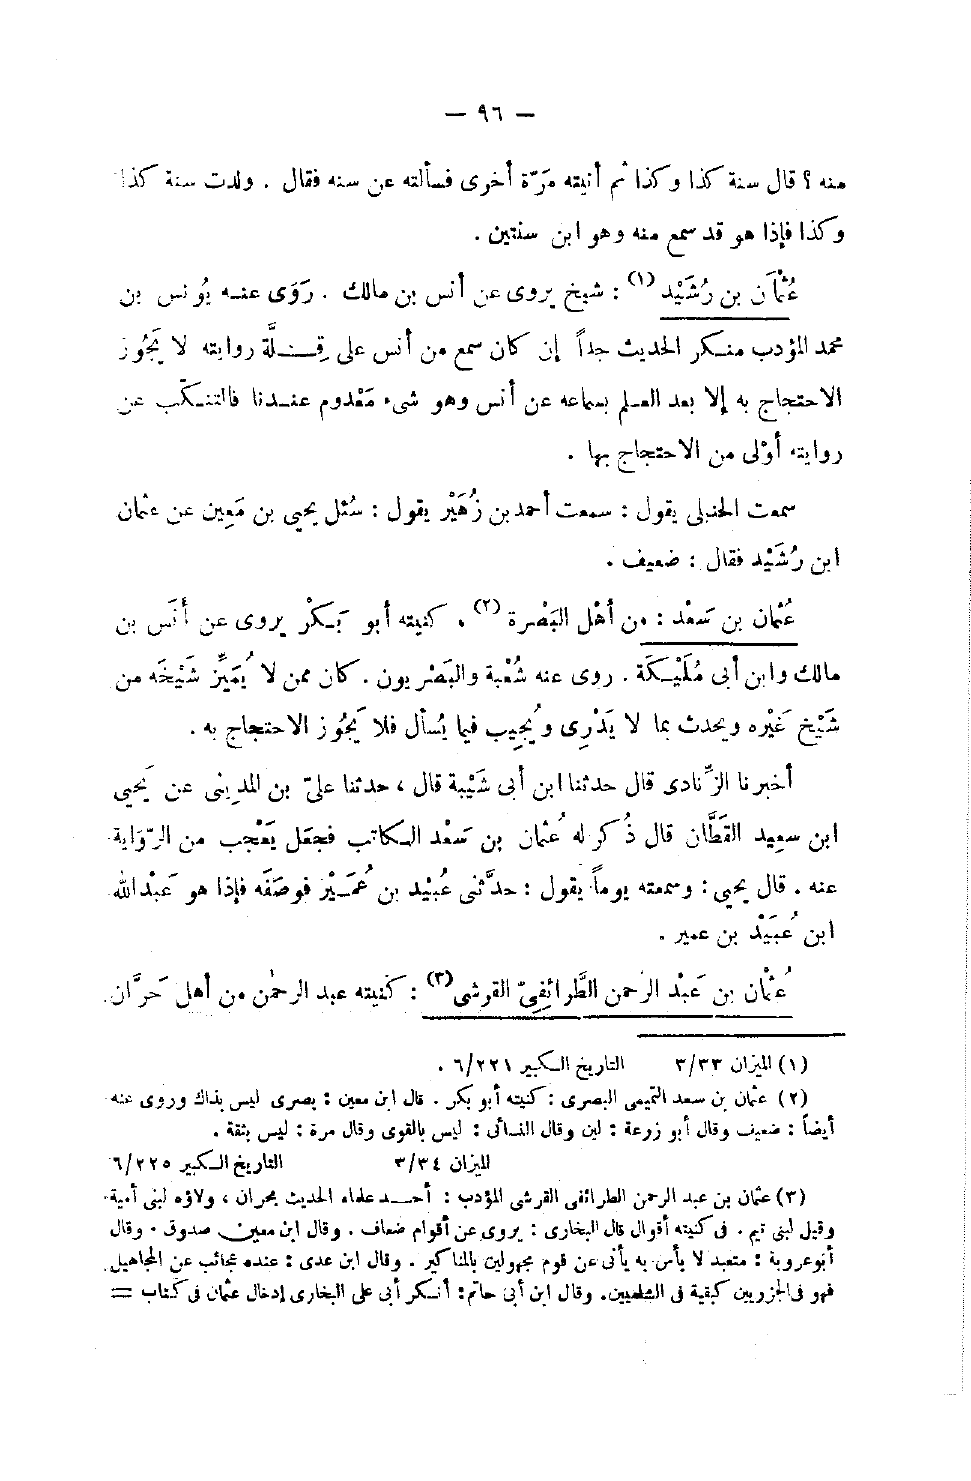 — ٩٦ —
منه ؟ قال سنة كذا وكذا ثم أتيته مرّة أخرى فسألته عن سنه فقال . ولدت سنة كذا
وكذا فإذا هو قد سمع منه وهو ابن سنتين .
عُثْمَان بن رُشَيْد (١) : شيخ يروى عن أنس بن مالك . رَوَى عنه يُونس بن
محمد المؤدب منكر الحديث جداً إن كان سمع من أنس على قِلَّة روايته لا يَجُوز
الاحتجاج به إلا بعد العلم بسماعه عن أنس وهو شىء مَعْدوم عندنا فالتنكّب عن
روايته أوْلى من الاحتجاج بها .
سمعت الحنبلى يقول : سمعت أحمد بن زُهَيْر يقول : سُئل يحيى بن مَعِين عن عثمان
ابن رُشَيْد فقال : ضعيف .
عُثمان بن سَعْد : من أهْل البَصْرة (٢) . كنيته أبو بَكْر يروى عن أنَس بن
مالك وابن أبى مُلَيْكَة . روى عنه شُعْبة والبَصْريون . كان ممن لا يُمَيِّز شَيْخَه من
شَيْخ غَيْره ويحدث بما لا يَدْرِى ويُجِيب فيما يُسأل فلا يَجُوز الاحتجاج به .
أخبرنا الزِّنادى قال حدثنا ابن أبى شَيْبة قال ، حدثنا علىّ بن المدينى عن يَحيى
ابن سعِيد القَطَّان قال ذُكر له عُثمان بن سَعْد الكاتب فجعَل يَعْجب من الرّوَاية
عنه . قال يحيى : وسمعته يوماً يقول : حدَّثنى عُبَيْد بن عُمَيْر فوصَفَه فإذا هو عَبْد الله
ابن عُبَيْد بن عمير .
عُثْمان بن عَبْد الرحمن الطَّرائِفِىّ القرشى (٣) : كُنيته عبد الرحمٰن من أهل حَرَّان
(١) الميزان ٣/٣٣ التاريخ الكبير ٦/٢٢١ .
(٢) عثمان بن سعد التميمى البصرى : كنيته أبو بكر . قال ابن معين : بصرى ليس بذاك وروى عنه
أيضاً : ضعيف وقال أبو زرعة : لين وقال النسائى : ليس بالقوى وقال مرة : ليس بثقة .
الميزان ٣/٣٤ التاريخ الكبير ٦/٢٢٥
(٣) عثمان بن عبد الرحمن الطرائفى القرشى المؤدب : أحد علماء الحديث بحران ، ولاؤه لبنى أمية
وقيل لبنى تيم . فى كنيته أقوال قال البخارى : يروى عن أقوام ضعاف . وقال ابن معين صدوق . وقال
أبو عروبة : متعبد لا بأس به يأتى عن قوم مجهولين بالمناكير . وقال ابن عدى : عنده عجائب عن المجاهيل
فهو فى الجزريين كبقية فى الشاميين. وقال ابن أبى حاتم: أنكر أبى على البخارى إدخال عثمان فى كتاب =